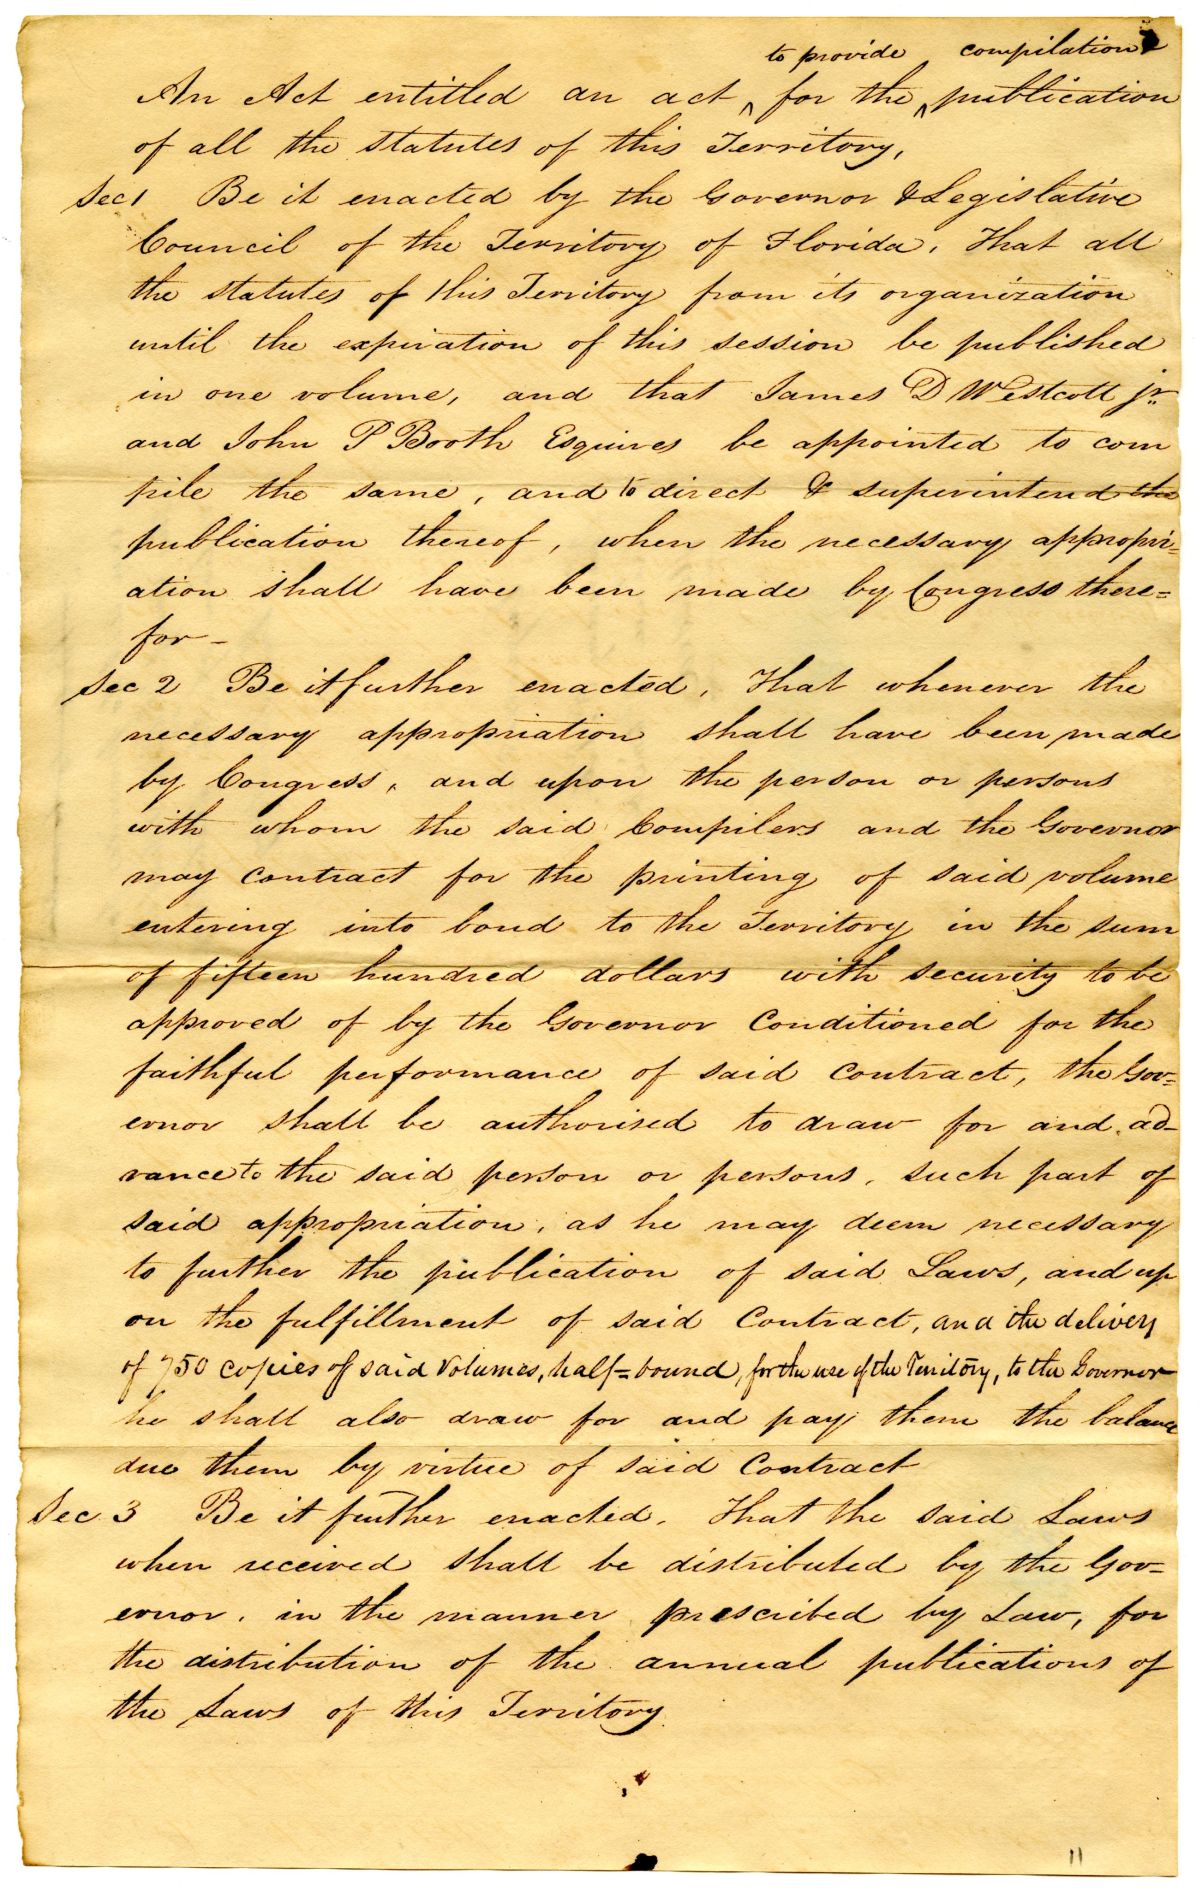 to provide compilation &
An Act entitled an act ^ for the ^ publication
of all the statutes of this Territory,
Sec 1 Be it enacted by the Governor & Legislative
Council of the Territory of Florida, That all
the statutes of this Territory from its organization
until the expiration of this session be published
in one volume, and that James D Westcott jr
and John P Booth Esquires be appointed to com
pile the same, and to direct & superintend the
publication thereof, when the necessary appropri=
ation shall have been made by Congress there=
for -
Sec 2 Be it further enacted, That whenever the
necessary appropriation shall have been made
by Congress, and upon the person or persons
with whom the said Compilers and the Governor
may contract for the printing of said volume
entering into bond to the Territory in the sum
of fifteen hundred dollars with security to be
approved of by the Governor Conditioned for the
faithful performance of said contract, the Gov=
ernor shall be authorised to draw for and ad-
vance to the said person or persons, such part of
said appropriation, as he may deem necessary
to further the publication of said Laws, and up
on the fulfillment of said Contract, and the delivery
of 750 copies of said Volumes, half=bound, for the use of the Territory, to the Governor
he shall also draw for and pay them the balance
due them by virtue of said Contract
Sec 3 Be it further enacted, That the said Laws
when received shall be distributed by the Gov=
ernor, in the manner prescribed by Law, for
the distribution of the annual publications of
the Laws of this Territory.
11